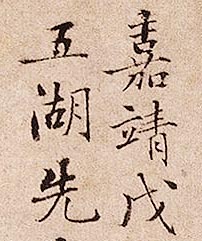 嘉靖戊
五湖先